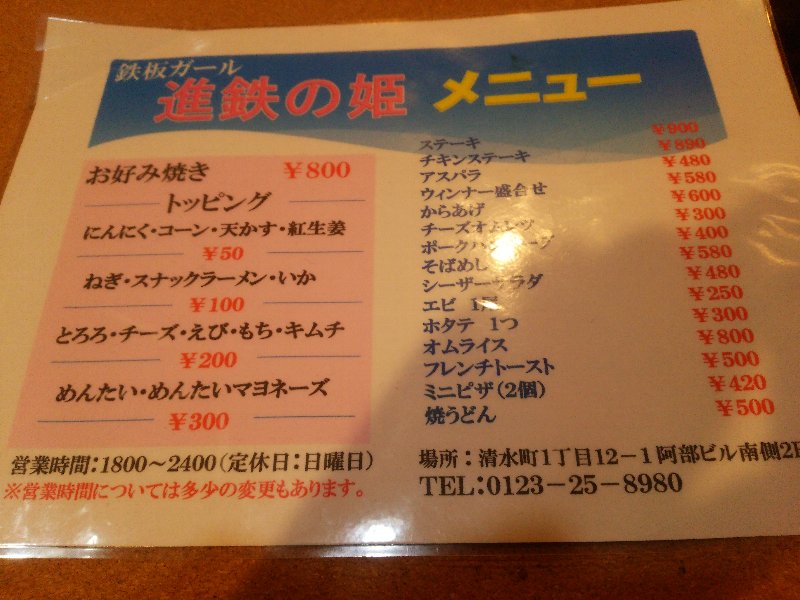 鉄板ガール
進鉄の姫 メニュー
お好み焼き ￥800
トッピング
にんにく・コーン・天かす・紅生姜
￥50
ねぎ・スナックラーメン・いか
￥100
とろろ・チーズ・えび・もち・キムチ
￥200
めんたい・めんたいマヨネーズ
￥300
営業時間：1800～2400（定休日：日曜日）
※営業時間については多少の変更もあります。
ステーキ ￥900
チキンステーキ ￥890
アスパラ ￥480
ウィンナー盛合せ ￥580
からあげ ￥600
チーズオムレツ ￥300
ポーク ￥400
そばめし ￥580
シーザーサラダ ￥480
エビ 1尾 ￥250
ホタテ 1つ ￥300
オムライス ￥800
フレンチトースト ￥500
ミニピザ（2個） ￥420
焼うどん ￥500
場所：清水町1丁目12－1阿部ビル南側2F
TEL：0123－25－8980